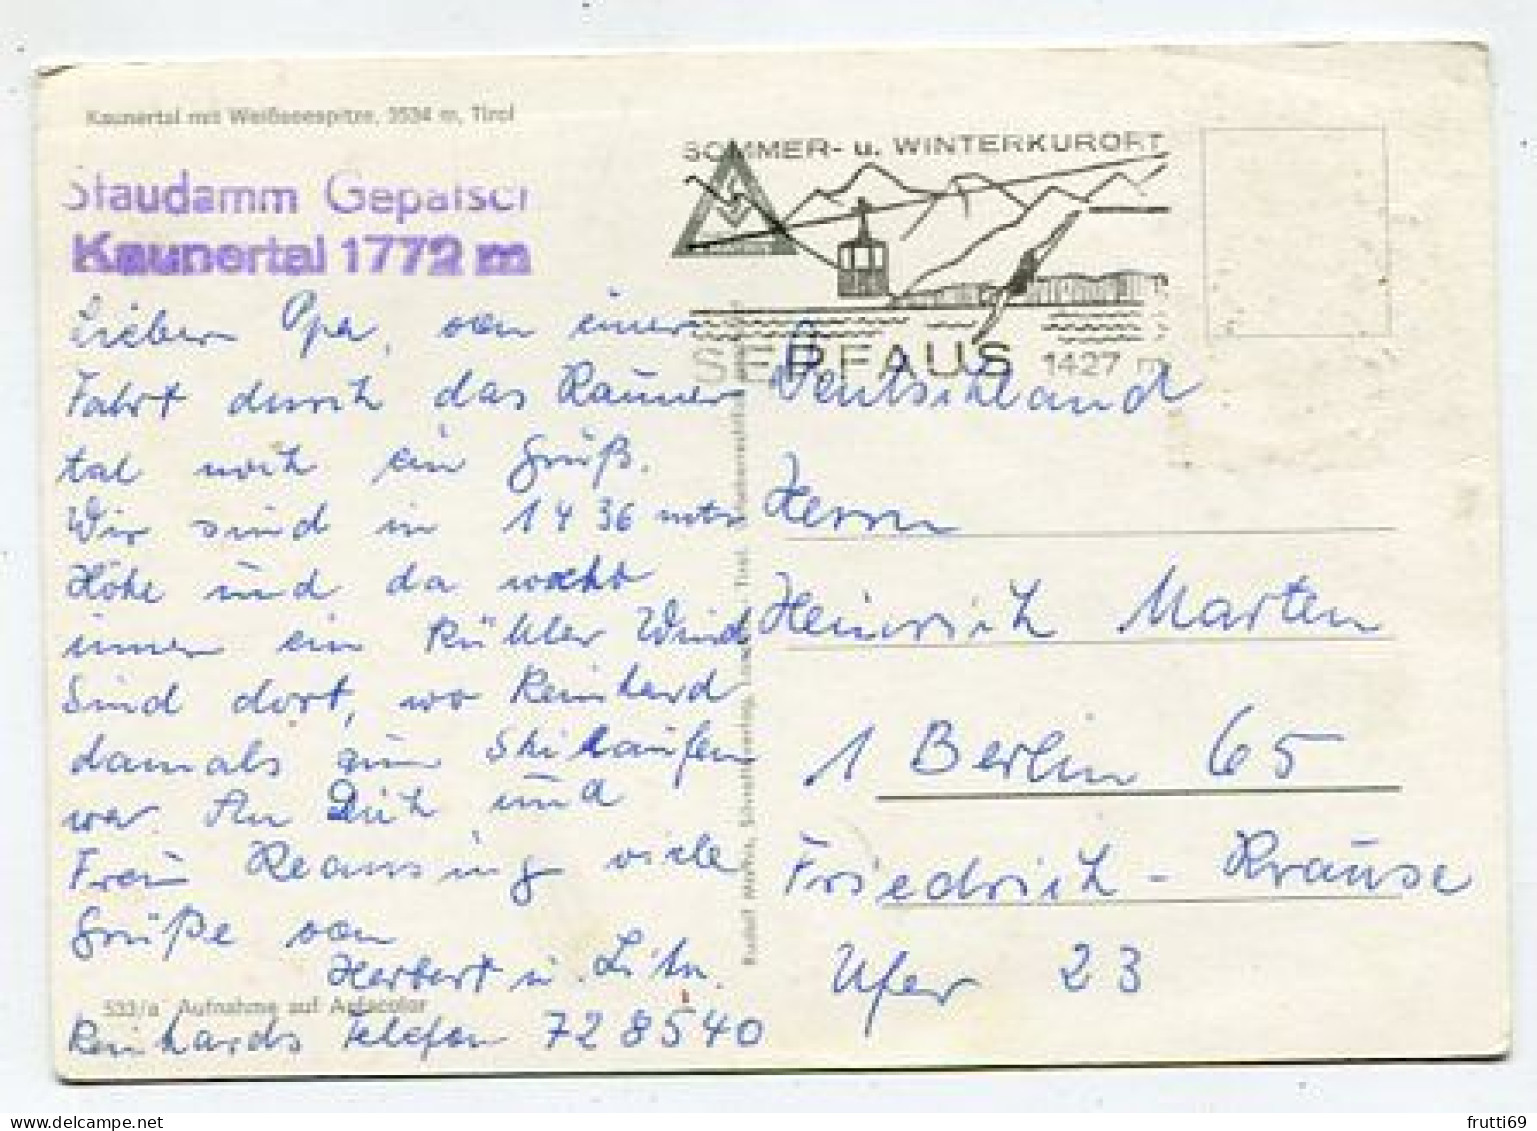 Kaunertal mit Weißseespitze, 3534 m, Tirol
Staudamm Gepatsch
Kaunertal 1772 m
SOMMER- u. WINTERKURORT
SERFAUS 1427 m
Lieber Opa, von einer
Fahrt durch das Kauner
tal noch ein Gruß.
Wir sind in 1436 mtr
Höhe und da weht
immer ein kühler Wind
Sind dort, wo Reinhard
damals zum Skilaufen
war. An Dich und
Frau viele
Grüße von
Herbert u.
Reinhards Telefon 728540
533/a Aufnahme auf Agfacolor
Deutschland
Herrn
Heinrich Marten
1 Berlin 65
Friedrich-Krause
Ufer 23
delcampe.net
frutti69